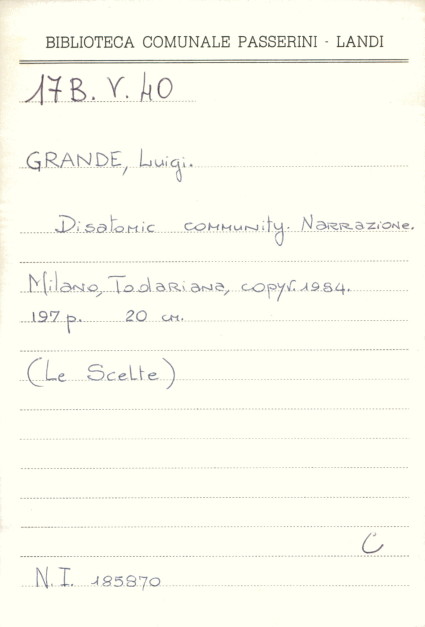 BIBLIOTECA COMUNALE PASSERINI - LANDI
17B. V. 40
GRANDE, Luigi.
Disatomic community. Narrazione.
Milano, Todariana, copyr. 1984.
197 p. 20 cm.
(Le Scelte)
C
N. I. 185870